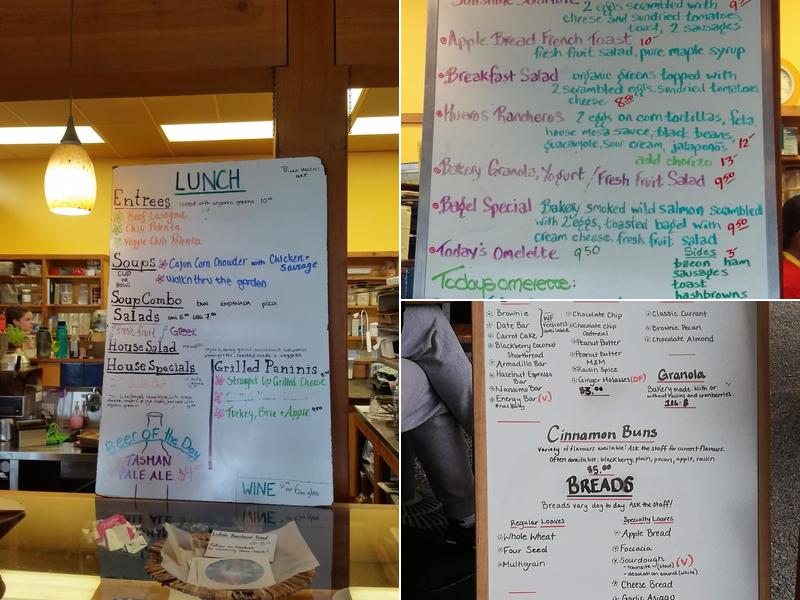 LUNCH
Entrees served with organic greens 10⁰⁰
Beef Lasagna
Chili Polenta
Veggie Chili Polenta
Soups Cajun Corn Chowder with Chicken + Sausage
CUP or BOWL
Walk'n thru the garden
Soup Combo BUN EMPANADA PIZZA
Salads
Fresh fruit Greek
House Salad
House Specials
Sold Out
Grilled Paninis
Straight Up Grilled Cheese
Turkey, Brie + Apple 9⁵⁰
Beer OF the Day
TASMAN
PALE ALE $4⁰⁰
WINE
2 eggs scrambled with
cheese and sundried tomatoes,
toast, 2 sausages
Apple Bread French Toast 10
fresh fruit salad, pure maple syrup
Breakfast Salad organic greens topped with
2 scrambled eggs, sundried tomatoes
cheese 8⁵⁰
Huevos Rancheros 2 eggs on corn tortillas, feta,
house mesa sauce, black beans,
guacamole, sour cream, jalapeños 12
add chorizo 13
Bakery Granola, Yogurt / Fresh Fruit Salad 9⁵⁰
Bagel Special Bakery smoked wild salmon scrambled
with 2 eggs, toasted bagel with 9⁵⁰
cream cheese, fresh fruit salad
Today's Omelette 9⁵⁰
Sides 3
bacon ham
sausages
toast
hashbrowns
Todays omelette:
Brownie
Date Bar
Carrot Cake
WF versions available
Blackberry Coconut
Shortbread
Armadillo Bar
Hazelnut Espresso
Bar
Nanaimo Bar
Energy Bar (V)
Chocolate Chip
Chocolate chip
Oatmeal
Peanut Butter
Peanut butter
M&M
Raisin Spice
Ginger Molasses (DF)
Classic Currant
Brownie Pecan
Chocolate Almond
Granola
Bakery made. With or
without raisins and cranberries.
Cinnamon Buns
Variety of flavours available! Ask the staff for current flavours.
Often available: blackberry, plain, pecan, apple, raisin
$5.00
BREADS
Breads vary day to day. Ask the staff!
Regular Loaves
Whole Wheat
Four Seed
Multigrain
Specialty Loaves
Apple Bread
Foccacia
Sourdough (V)
- desolation sound (white)
Cheese Bread
Garlic Asiago